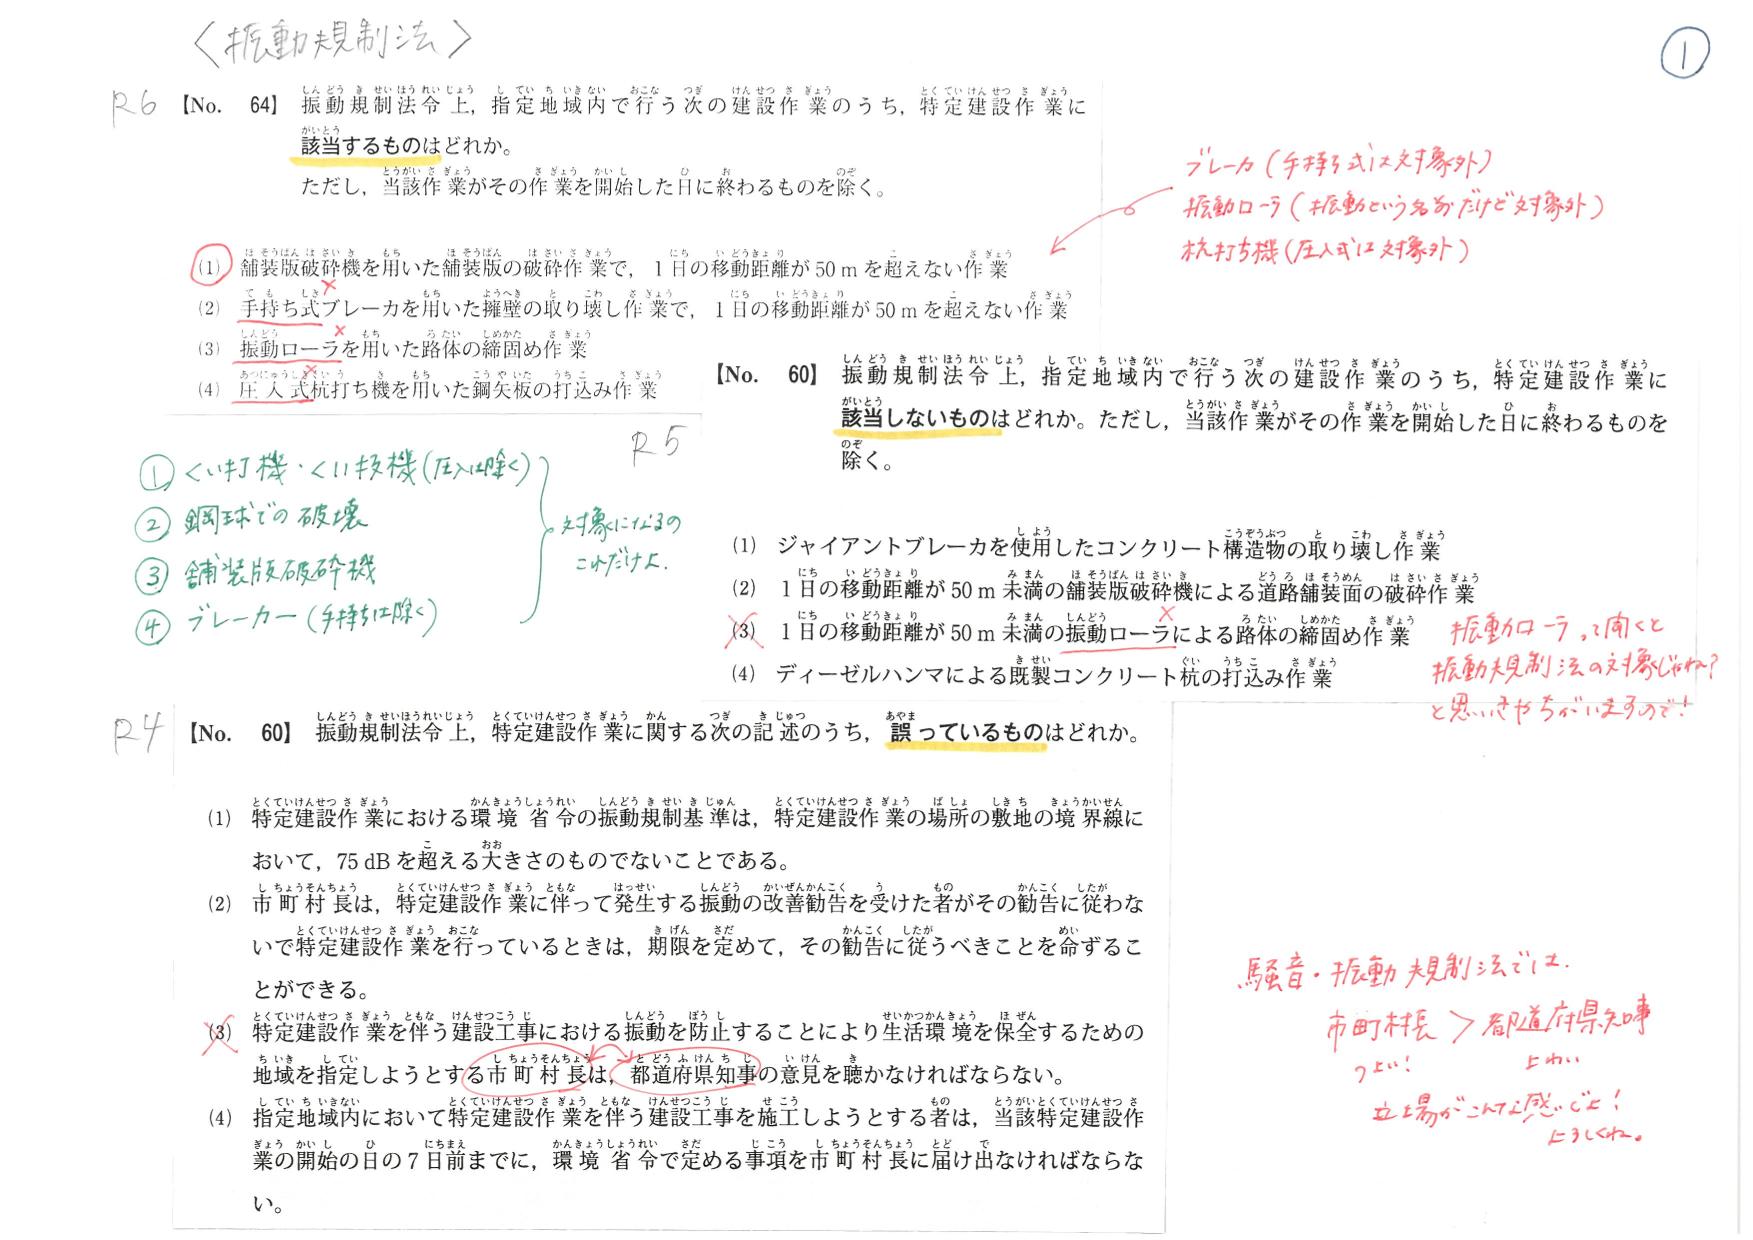 〈振動規制法〉
①
R6
【No. 64】 振動規制法令上，指定地域内で行う次の建設作業のうち，特定建設作業に
該当するものはどれか。
ただし，当該作業がその作業を開始した日に終わるものを除く。
(1) 舗装版破砕機を用いた舗装版の破砕作業で，1日の移動距離が50 mを超えない作業
(2) 手持ち式ブレーカを用いた擁壁の取り壊し作業で，1日の移動距離が50 mを超えない作業
(3) 振動ローラを用いた路体の締固め作業
(4) 圧入式杭打ち機を用いた鋼矢板の打込み作業
ブレーカ(手持ち式は対象外)
振動ローラ(振動という名前だけど対象外)
杭打ち機(圧入式は対象外)
① くい打機・くい抜機(圧入は除く)
② 鋼球での破壊
③ 舗装版破砕機
④ ブレーカー(手持ちは除く)
対象になるの
これだけよ.
R5
【No. 60】 振動規制法令上，指定地域内で行う次の建設作業のうち，特定建設作業に
該当しないものはどれか。ただし，当該作業がその作業を開始した日に終わるものを
除く。
(1) ジャイアントブレーカを使用したコンクリート構造物の取り壊し作業
(2) 1日の移動距離が50 m未満の舗装版破砕機による道路舗装面の破砕作業
(3) 1日の移動距離が50 m未満の振動ローラによる路体の締固め作業
(4) ディーゼルハンマによる既製コンクリート杭の打込み作業
振動ローラって聞くと
振動規制法の対象じゃね?
と思いきやちがいますので!
R4
【No. 60】 振動規制法令上，特定建設作業に関する次の記述のうち，誤っているものはどれか。
(1) 特定建設作業における環境省令の振動規制基準は，特定建設作業の場所の敷地の境界線に
おいて，75 dBを超える大きさのものでないことである。
(2) 市町村長は，特定建設作業に伴って発生する振動の改善勧告を受けた者がその勧告に従わな
いで特定建設作業を行っているときは，期限を定めて，その勧告に従うべきことを命ずるこ
とができる。
(3) 特定建設作業を伴う建設工事における振動を防止することにより生活環境を保全するための
地域を指定しようとする市町村長は，都道府県知事の意見を聴かなければならない。
(4) 指定地域内において特定建設作業を伴う建設工事を施工しようとする者は，当該特定建設作
業の開始の日の7日前までに，環境省令で定める事項を市町村長に届け出なければならな
い。
騒音・振動規制法では.
市町村長 > 都道府県知事
つよい! よわい
立場がこんな感じでよ!
よろしくね。